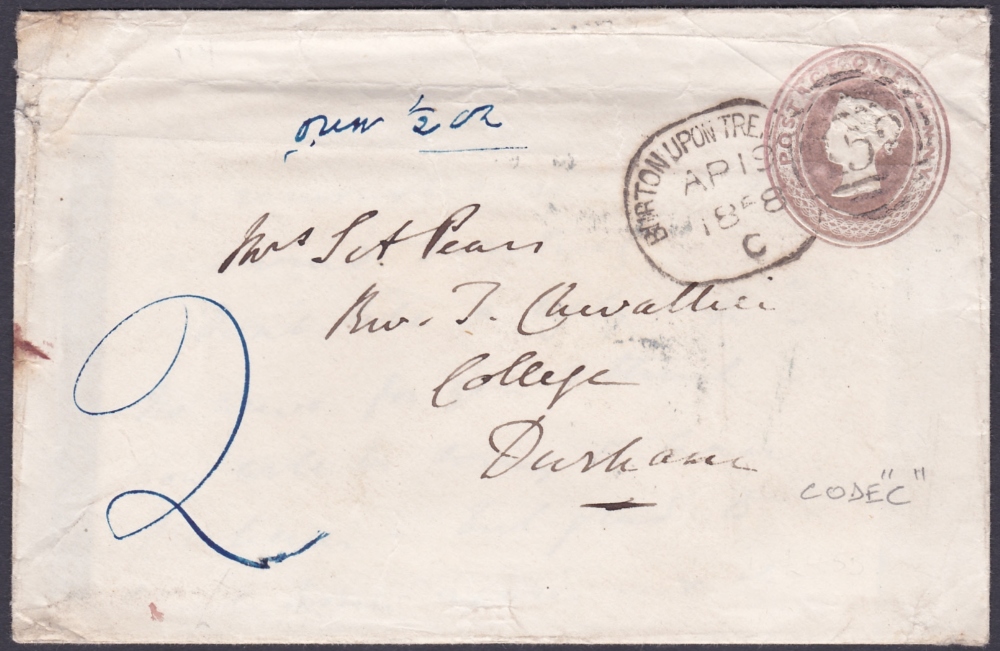 over 1/2 oz
POSTAGE ONE PENNY
BURTON UPON TRE
AP 19
1858
C
Mrs S A Pears
Rev. T. Chevallier
College
Durham
2
CODE "C"